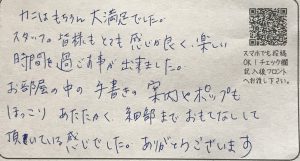 カニはもちろん大満足でした。
スタッフ皆様もとても感じが良く、楽しい
時間を過ごす事が出来ました。
お部屋の中の手書きの案内やポップも
ほっこりあたたかく、細部までおもてなしして
頂いている感じでした。ありがとうございます
スマホでも投稿
OK!チェック欄
記入後フロント
へお渡し下さい。